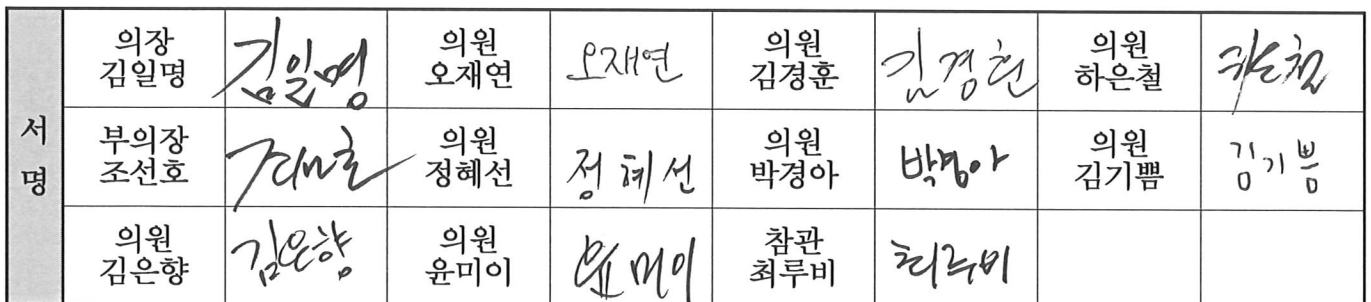 서명
의장
김일명
김일명
의원
오재연
오재연
의원
김경훈
김경훈
의원
하은철
하은철
부의장
조선호
조선호
의원
정혜선
정혜선
의원
박경아
박경아
의원
김기쁨
김기쁨
의원
김은향
김은향
의원
윤미이
윤미이
참관
최루비
최루비